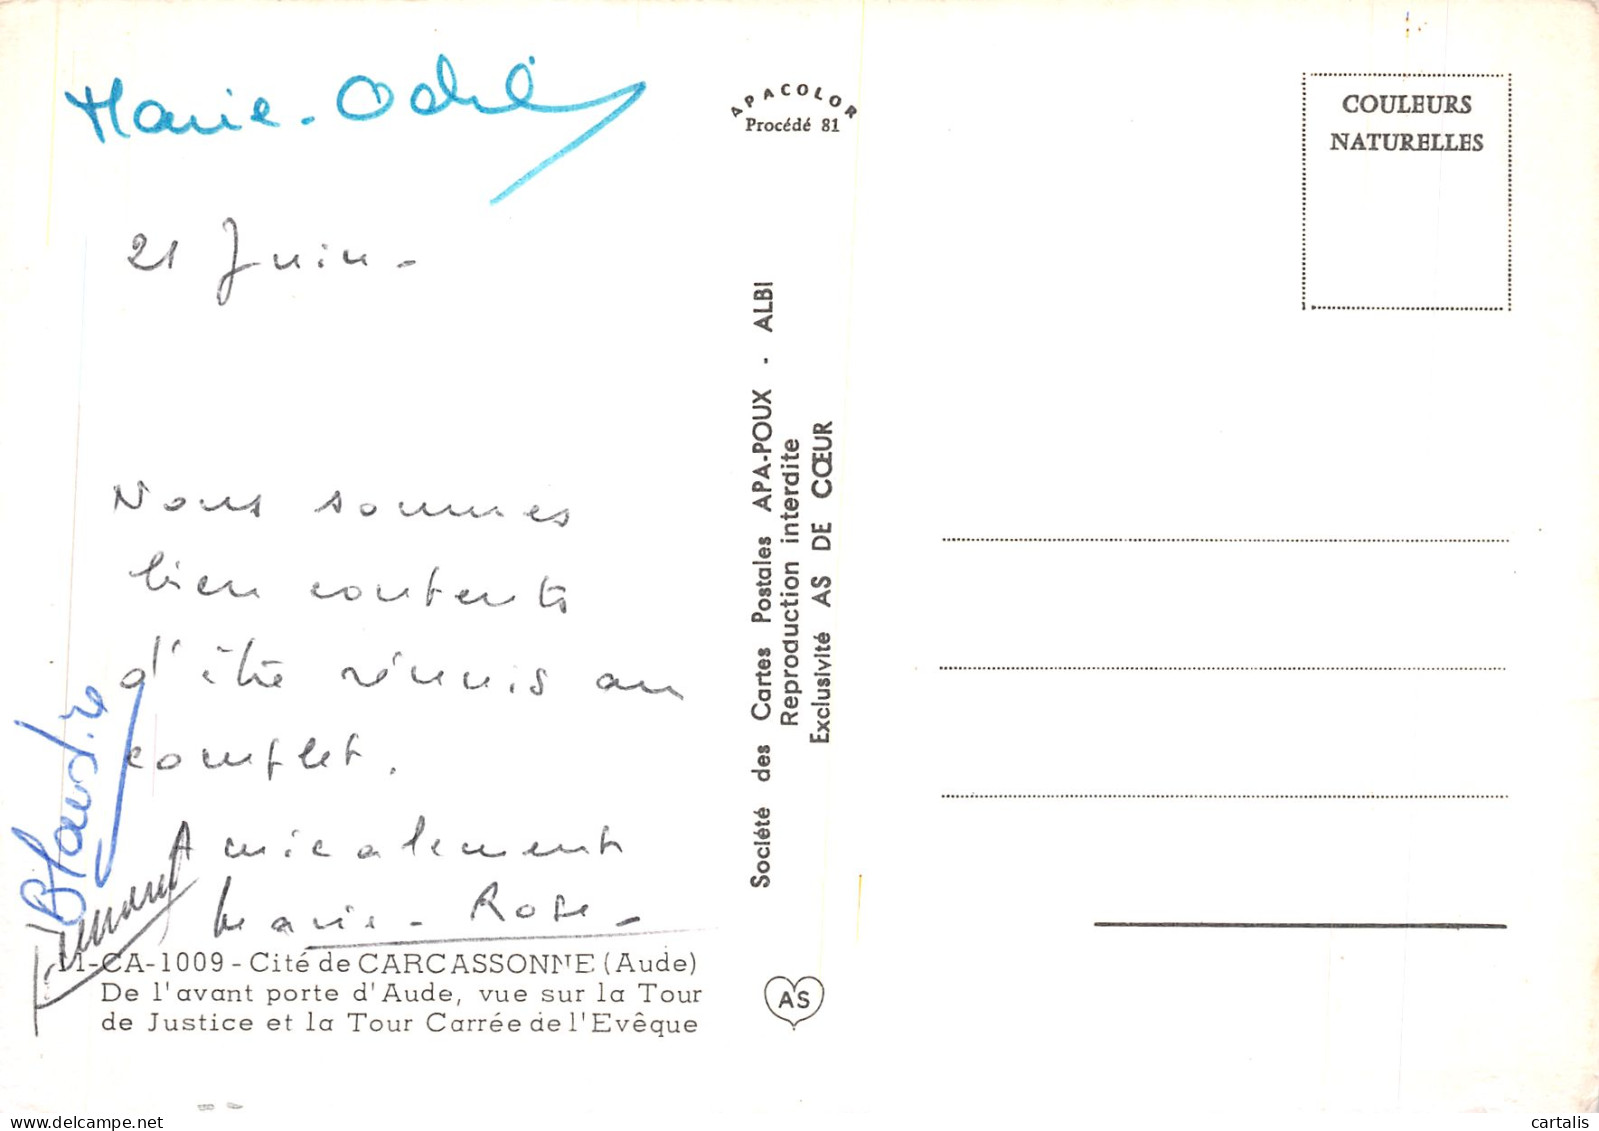 Marie-Odile
21 Juin -
Nous sommes
bien contents
d'être réunis au
complet.
Amicalement
Marie-Rose-
Blandine
11-CA-1009 - Cité de CARCASSONNE (Aude)
De l'avant porte d'Aude, vue sur la Tour
de Justice et la Tour Carrée de l'Evêque
APACOLOR
Procédé 81
Société des Cartes Postales APA-POUX - ALBI
Reproduction interdite
Exclusivité AS DE CŒUR
AS
COULEURS
NATURELLES
cartalis